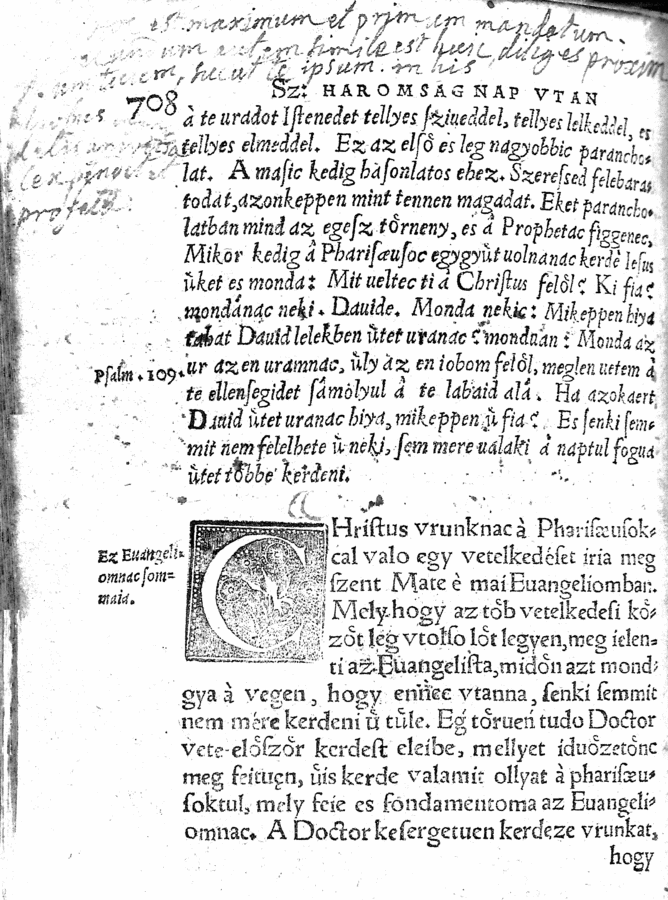 est maximum et primum mandatum.
autem simile est huic, diliges proxim
tuum, sicut te ipsum. in his
Sz: HAROMSAG NAP VTAN
708
à te uradot Iſtenedet tellyes ſziueddel, tellyes lelkeddel, es
tellyes elmeddel. Ez az elſő es leg nagyobbic parancho-
lat. A maſic kedig haſonlatos ehez. Szereſſed felebaras
todat, azonkeppen mint tennen magadat. Eket parancho-
latban mind az egeſz tőrneny, es â Prophetac figgenec,
Mikor kedig â Phariſæuſoc egygyùt uolnanac kerdé Ieſus
ùket es monda: Mit ueltec ti â Chriſtus felől? Ki fia?
mondánac neki. Dauide. Monda nekic: Mikeppen hiya
tahat Dauid lelekben ùtet uranac? monduan: Monda az
Pſalm. 109.
ur az en uramnac, ùly az en iobom felől, meglen uetem â
te ellenſegidet ſâmolyul â te labaid alá. Ha azokaert
Dauid ùtet uranac hiya, mikeppen ù fia? Es ſenki ſem-
mit nem felelhete ù neki, ſem mere ualaki â naptul fogua
ùtet tőbbe kerdeni.
Ez Euangeli-
omnac ſom-
maia.
CHriſtus vrunknac à Phariſæuſok-
cal valo egy vetelkedéſet iria meg
ſzent Mate è mai Euangeliomban.
Mely hogy az tőb vetelkedeſi kő-
zőt leg vtolſo lőt legyen, meg ielen-
ti az Euangeliſta, midőn azt mond-
gya à vegen, hogy ennec vtanna, ſenki ſemmit
nem mére kerdeni ù tùle. Eǵ tőrueń tudo Doctor
vete előſzőr kerdeſt eleibe, mellyet iduőzetőnc
meg feituen, ùis kerde valamit ollyat à phariſæu-
ſoktul, mely feie es fondamentoma az Euangeli-
omnac. A Doctor keſergetuen kerdeze vrunkat,
hogy